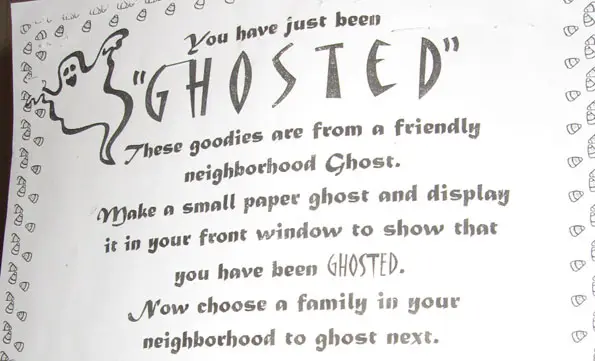 You have just been
"GHOSTED"
These goodies are from a friendly
neighborhood Ghost.
Make a small paper ghost and display
it in your front window to show that
you have been GHOSTED.
Now choose a family in your
neighborhood to ghost next.